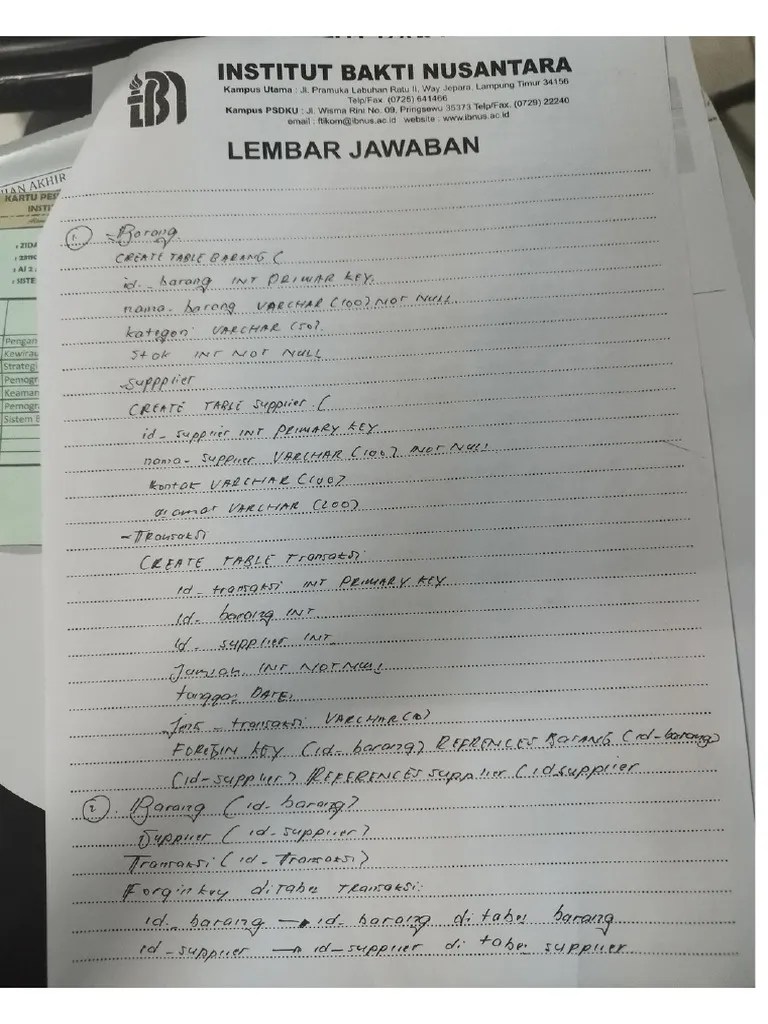 IBN
INSTITUT BAKTI NUSANTARA
Kampus Utama : Jl. Pramuka Labuhan Ratu II, Way Jepara, Lampung Timur 34156
Telp/Fax. (0725) 641466
Kampus PSDKU : Jl. Wisma Rini No. 09, Pringsewu 35373 Telp/Fax. (0729) 22240
email : ftikom@ibnus.ac.id website : www.ibnus.ac.id
LEMBAR JAWABAN
JIAN AKHIR
KARTU PES
INSTI
: ZIDA
: AI 2
: SISTE
Pengan
Kewirau
Strategi
Pemogra
Keaman
Pemogra
Sistem B
1. Barang
CREATE TABLE BARANG (
id_barang INT PRIMAR KEY.
nama_barang VARCHAR (100) NOT NULL.
kategori VARCHAR (50).
Stok INT NOT NULL
Suppplier
CREATE TABLE Supplier. (
id_supplier INT PRIMARY KEY
nama_supplier VARCHAR (100) NOT NULL
kontak VARCHAR (100)
alamat VARCHAR (200)
- Transaksi
CREATE TABLE Transaksi
id_transaksi INT PRIMARY KEY
id_barang INT
id_supplier INT
Jumlah INT NOT NULL
tanggal DATE,
transaksi VARCHAR (10)
FOREIGN KEY (id_barang) REFRENCES Barang (id_barang)
(id_supplier) REFERENCES supplier (id supplier
2. Barang (id_barang)
Supplier (id_supplier)
Transaksi (id_Transaksi)
Forgin key di tabel transaksi:
id_barang → id_barang di tabel barang
id_supplier → id_supplier di tabel supplier